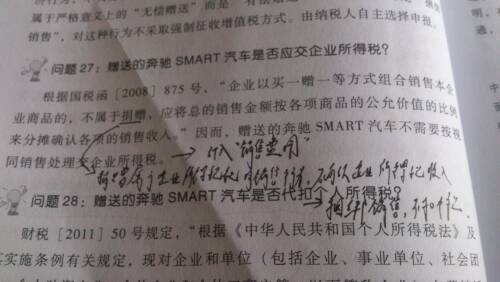 属于严格意义上的“无偿赠送”而是
销售”，对这种行为不采取强制征收增值税方式。由纳税人自主选择申报。
问题27：赠送的奔驰SMART汽车是否应交企业所得税？
根据国税函［2008］875号，“企业以买一赠一等方式组合销售本企
业商品的，不属于捐赠，应将总的销售金额按各项商品的公允价值的比例
来分摊确认各项的销售收入。”因而，赠送的奔驰SMART汽车不需要按视
同销售处理交企业所得税。→计入“销售费用”
问题28：赠送的奔驰SMART汽车是否代扣个人所得税？
捆绑销售，不扣个税
财税［2011］50号规定，“根据《中华人民共和国个人所得税法》及
其实施条例有关规定，现对企业和单位（包括企业、事业单位、社会团